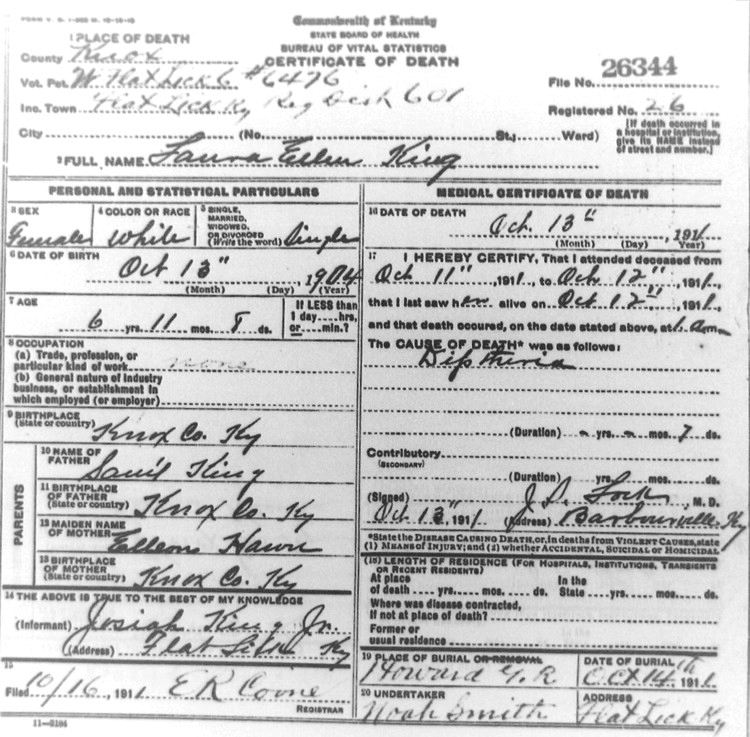 Commonwealth of Kentucky
STATE BOARD OF HEALTH
BUREAU OF VITAL STATISTICS
CERTIFICATE OF DEATH
1 PLACE OF DEATH
County Knox
Vot. Pct. W Flat Lick 6 #6476
File No. 26344
Inc. Town Flat Lick Ky Reg Dist 601
Registered No. 26
City (No. St.; Ward)
[If death occurred in a hospital or institution, give its NAME instead of street and number.]
2 FULL NAME Laura Ellen King
PERSONAL AND STATISTICAL PARTICULARS
3 SEX Female
4 COLOR OR RACE White
5 SINGLE, MARRIED, WIDOWED, OR DIVORCED (Write the word) Single
6 DATE OF BIRTH
Oct 13" 1904
(Month) (Day) (Year)
7 AGE
6 yrs. 11 mos. 8 ds.
If LESS than 1 day....hrs, or....min.?
8 OCCUPATION
(a) Trade, profession, or
particular kind of work none
(b) General nature of industry
business, or establishment in
which employed (or employer)
9 BIRTHPLACE
(State or country) Knox Co. Ky
PARENTS
10 NAME OF
FATHER King
11 BIRTHPLACE
OF FATHER
(State or country) Knox Co. Ky
12 MAIDEN NAME
OF MOTHER Elleen Hawn
13 BIRTHPLACE
OF MOTHER
(State or country) Knox Co. Ky
14 THE ABOVE IS TRUE TO THE BEST OF MY KNOWLEDGE
(Informant) Josiah King Jr.
(Address) Flat Lick Ky
15
Filed 10/16, 1911 E R
REGISTRAR
11-3184
MEDICAL CERTIFICATE OF DEATH
16 DATE OF DEATH
Oct. 13" 1911
(Month) (Day) (Year)
17 I HEREBY CERTIFY, That I attended deceased from
Oct 11", 1911, to Oct 12", 1911,
that I last saw her alive on Oct 12", 1911,
and that death occured, on the date stated above, at 1. am.
The CAUSE OF DEATH* was as follows:
Diptheria
(Duration) - yrs. - mos. 7 ds.
Contributory
(SECONDARY)
(Duration) yrs. mos. ds.
(Signed) J. S. Lock, M. D.
Oct 13", 1911 (Address) Barbourville, Ky
*State the DISEASE CAUSING DEATH, or, in deaths from VIOLENT CAUSES, state
(1) MEANS OF INJURY; and (2) whether ACCIDENTAL, SUICIDAL or HOMICIDAL
(18) LENGTH OF RESIDENCE (FOR HOSPITALS, INSTITUTIONS, TRANSIENTS
OR RECENT RESIDENTS)
At place of death yrs. mos. ds.
In the State yrs. mos. ds.
Where was disease contracted,
if not at place of death?
Former or
usual residence
19 PLACE OF BURIAL OR REMOVAL
Howard G. R
DATE OF BURIAL
Oct. 14th, 1911.
20 UNDERTAKER
Noah Smith
ADDRESS
Flat Lick Ky